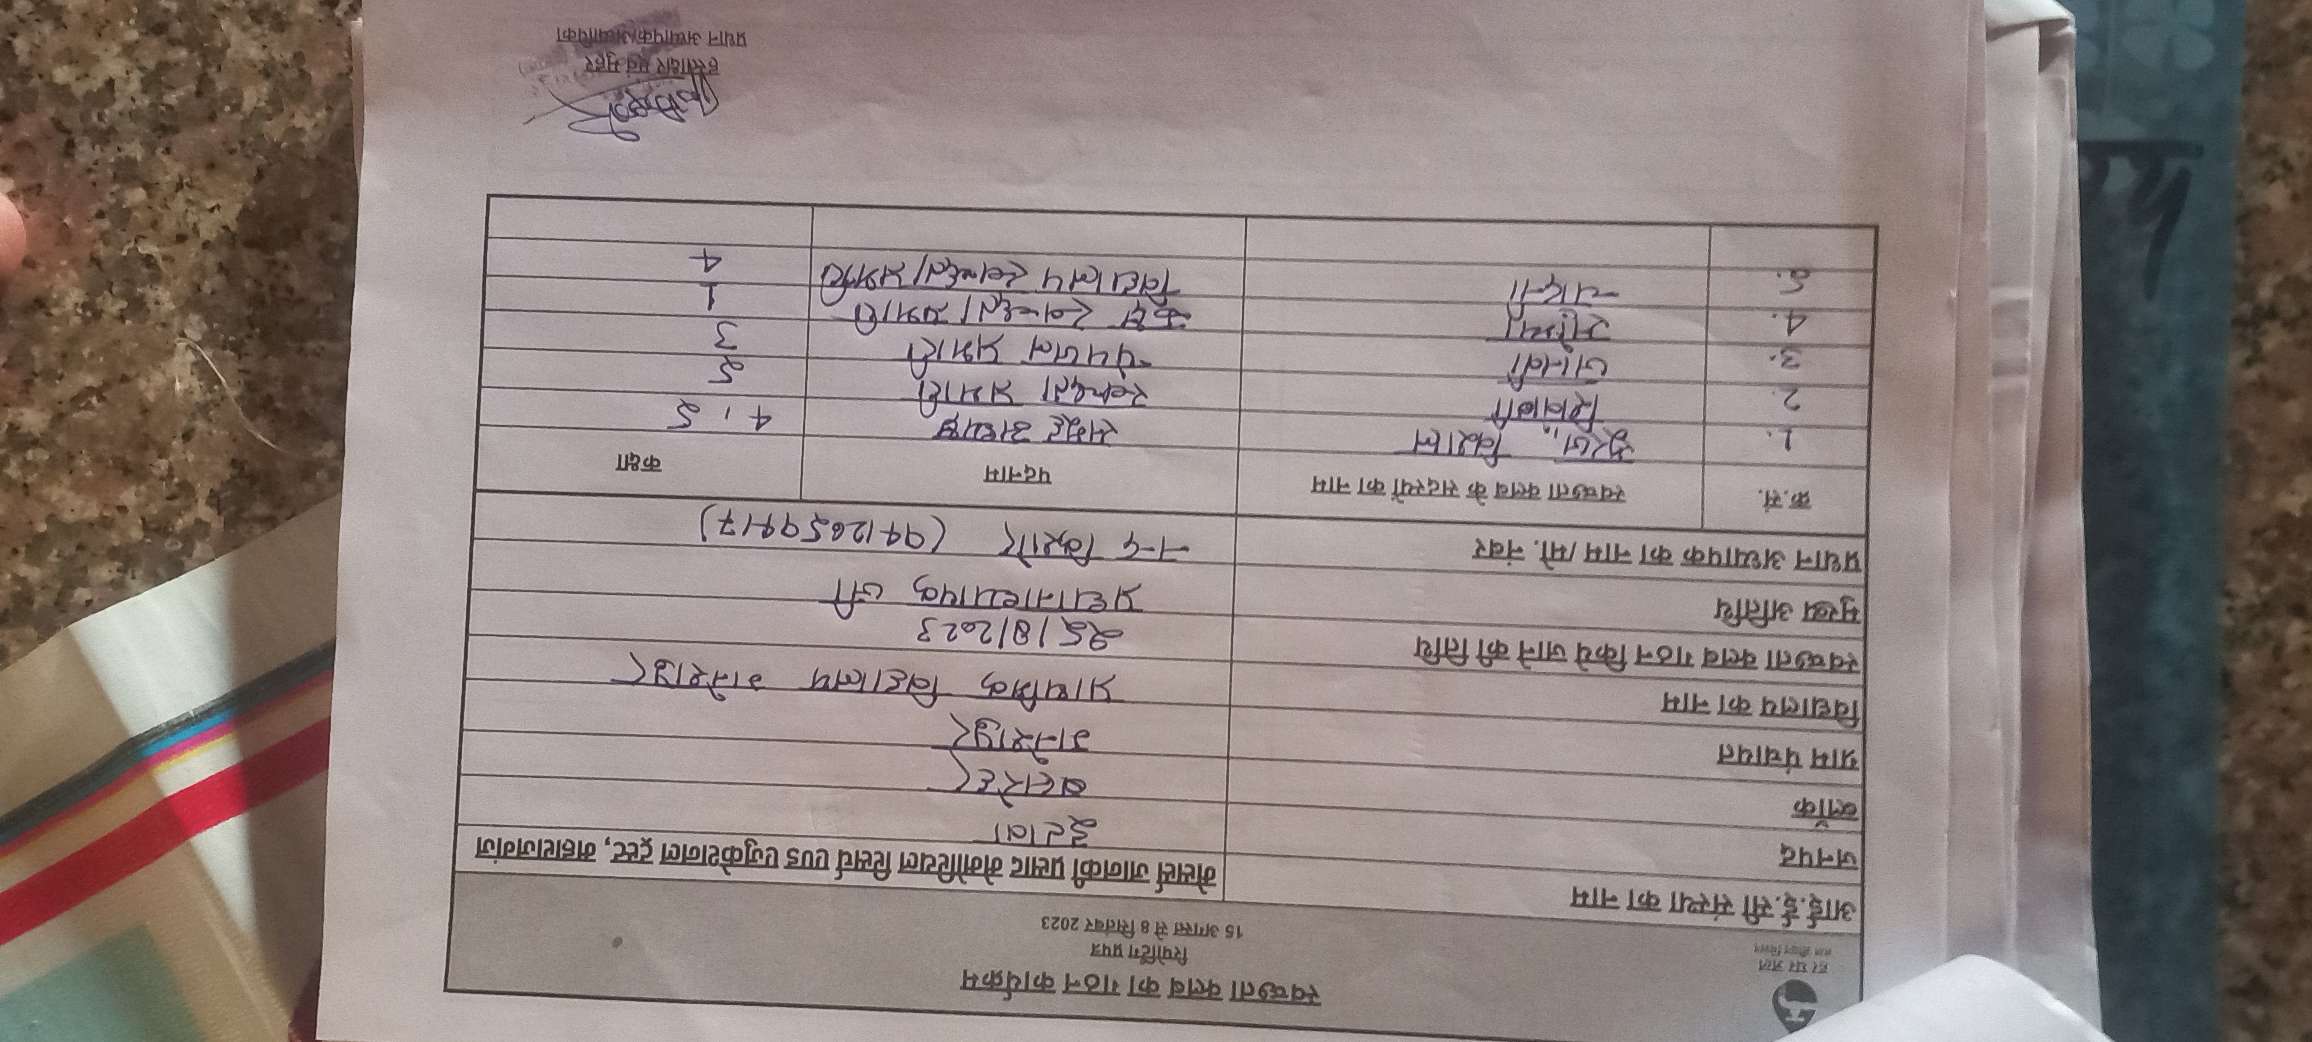 हर घर जल
जल जीवन मिशन
स्वच्छता क्लब का गठन कार्यक्रम
रिपोर्टिंग प्रपत्र
15 अगस्त से 8 सितंबर 2023
आई.ई.सी संस्था का नाम मेसर्स जानकी प्रसाद मेमोरियल रिसर्च एण्ड एजुकेशनल ट्रस्ट, महाराजगंज
जनपद इटावा
ब्लॉक बसरेहर
ग्राम पंचायत
विद्यालय का नाम प्राथमिक विद्यालय
स्वच्छता क्लब गठन किये जाने की तिथि 25/8/2023
मुख्य अतिथि प्रधानाध्यापक जी
प्रधान अध्यापक का नाम/मो. नंबर नन्द किशोर (9412659917)
क्र.सं. स्वच्छता क्लब के सदस्यों का नाम पदनाम कक्षा
1. सूरज, विशाल समूह अध्यक्ष 4, 5
2. शिवानी स्वच्छता प्रभारी 5
3. पेयजल प्रभारी 3
4. कक्षा स्वच्छता प्रभारी 1
5. विद्यालय स्वच्छता प्रभारी 4
हस्ताक्षर एवं मुहर
प्रधान अध्यापक/अध्यापिका